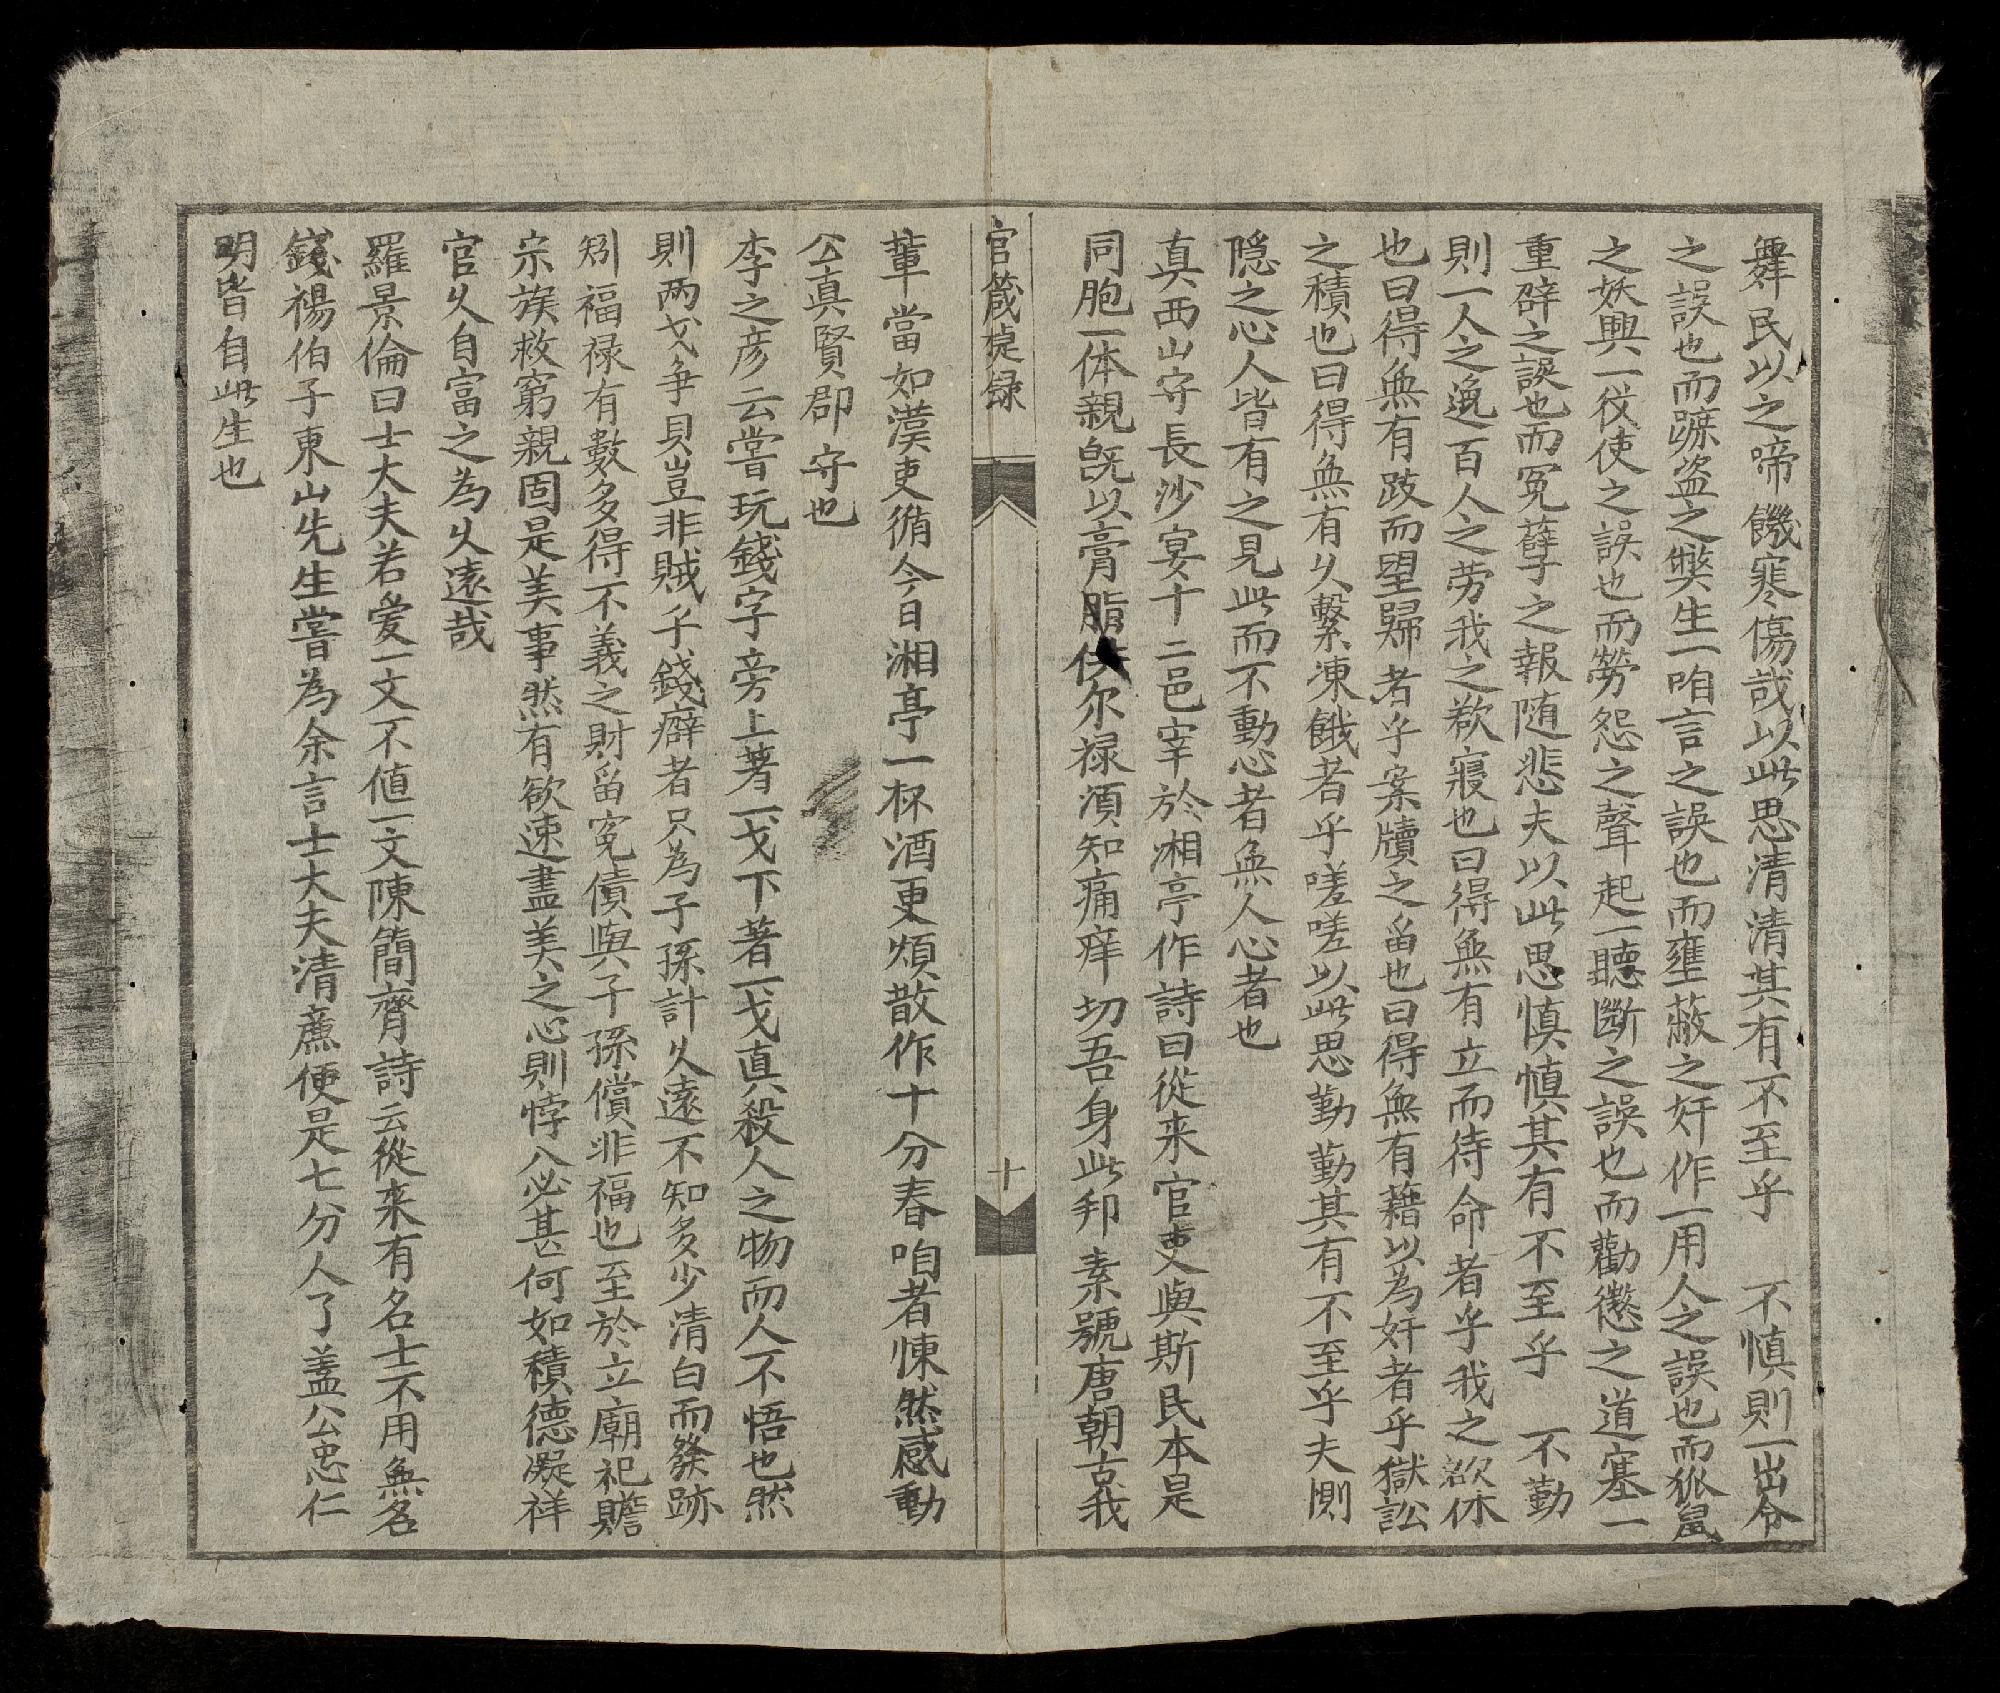 舞民以之啼饑寒傷哉以此思清清其有不至乎　不慎則一出令
之誤也而蹠盜之弊生一咱言之誤也而壅蔽之奸作一用人之誤也而狐鼠
之妖興一役使之誤也而勞怨之聲起一聽斷之誤也而勸懲之道塞一
重辟之誤也而冤孽之報随悲夫以此思慎慎其有不至乎　不勤
則一人之逸百人之劳我之欷寢也曰得無有立而待命者乎我之欲休
也曰得無有跂而望歸者乎案牘之畄也曰得無有藉以為奸者乎獄訟
之積也曰得無有久繫凍餓者乎嗟嗟以此思勤勤其有不至乎夫惻
隱之心人皆有之見此而不動心者無人心者也
真西山守長沙宴十二邑宰於湘亭作詩曰從来官吏與斯民本是
同胞一体親旣以膏脂供尔禄湏知痛痒切吾身此邦素號唐朝古我
官箴 録
十
軰當如漢吏循今日湘亭一杯酒更煩散作十分春咱者悚然感動
公真賢郡守也
李之彦云嘗玩錢字旁上著一戈下著一戈真殺人之物而人不悟也然
則两戈争貝豈非賊乎錢癖者只為子孫計久遠不知多少清白而發跡
矧福禄有數多得不義之財畄冤債與子孫償非福也至於立廟祀贍
宗族救窮親固是美事然有欲速盡美之心則悖入必甚何如積德凝祥
官久自富之為久遠哉
羅景倫曰士大夫若爱一文不値一文陳簡齊詩云從来有名士不用無名
錢楊伯子東山先生嘗為余言士大夫清蔗便是七分人了盖公忠仁
明皆自此生也